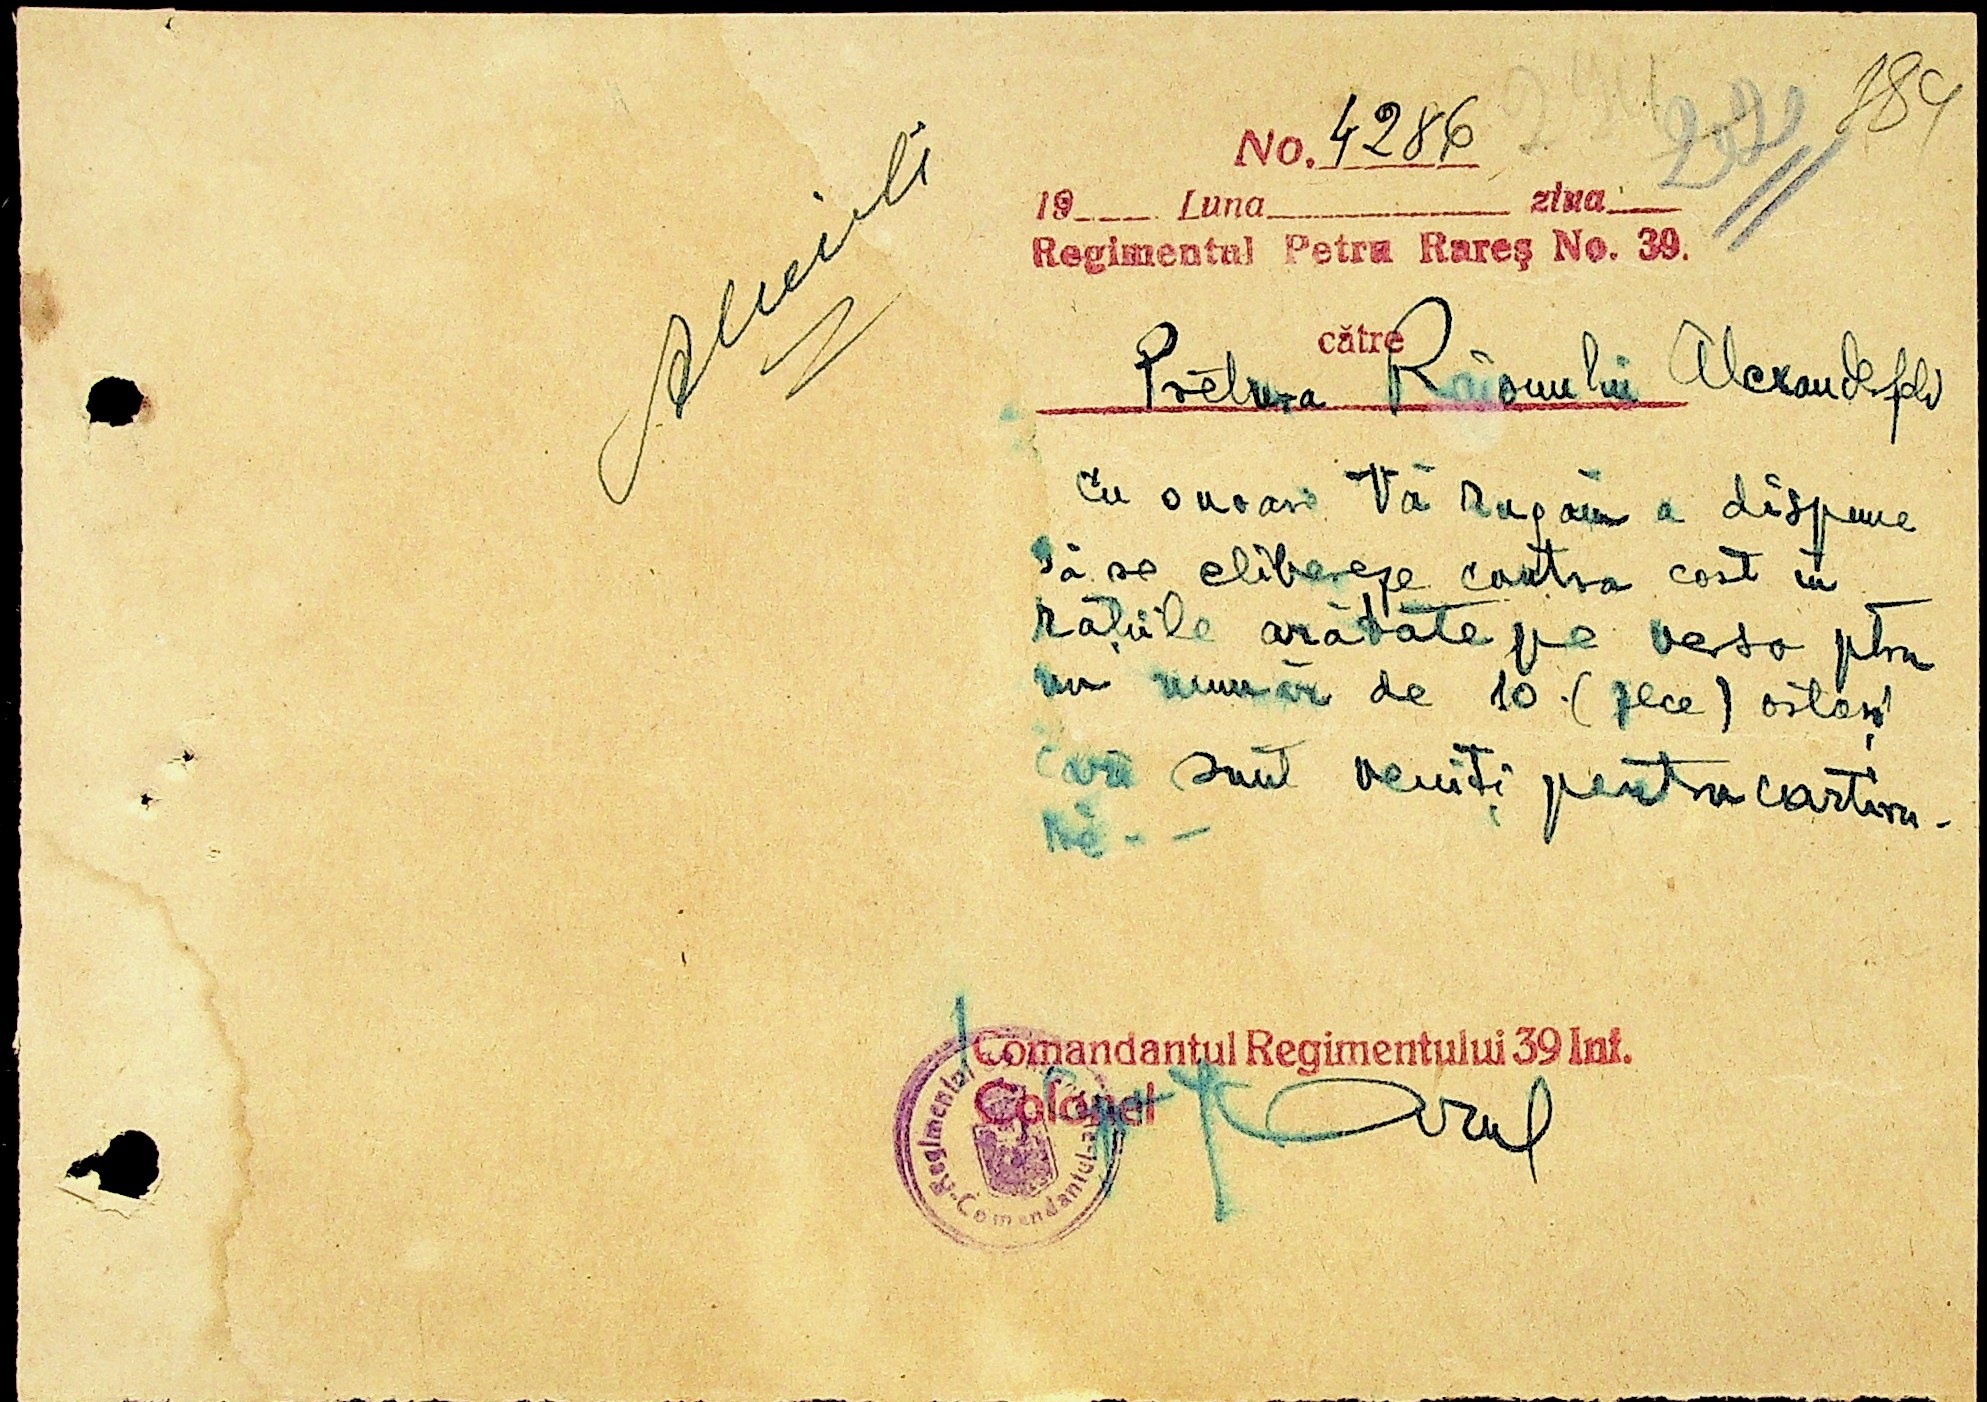 184
No. 4286
19____ Luna__________ ziua____
Regimentul Petru Rareş No. 39.
către
Pretura Raionului Alexanderfeld
Cu onoare Vă rugăm a dispune
să se elibereze contra cost în
rațiile arătate pe verso ptru
un număr de 10 (zece) ostași
care sunt veniți pentru cartiru-
re. -
Comandantul Regimentului 39 Inf.
Colonel
Regimentului
Comandantul